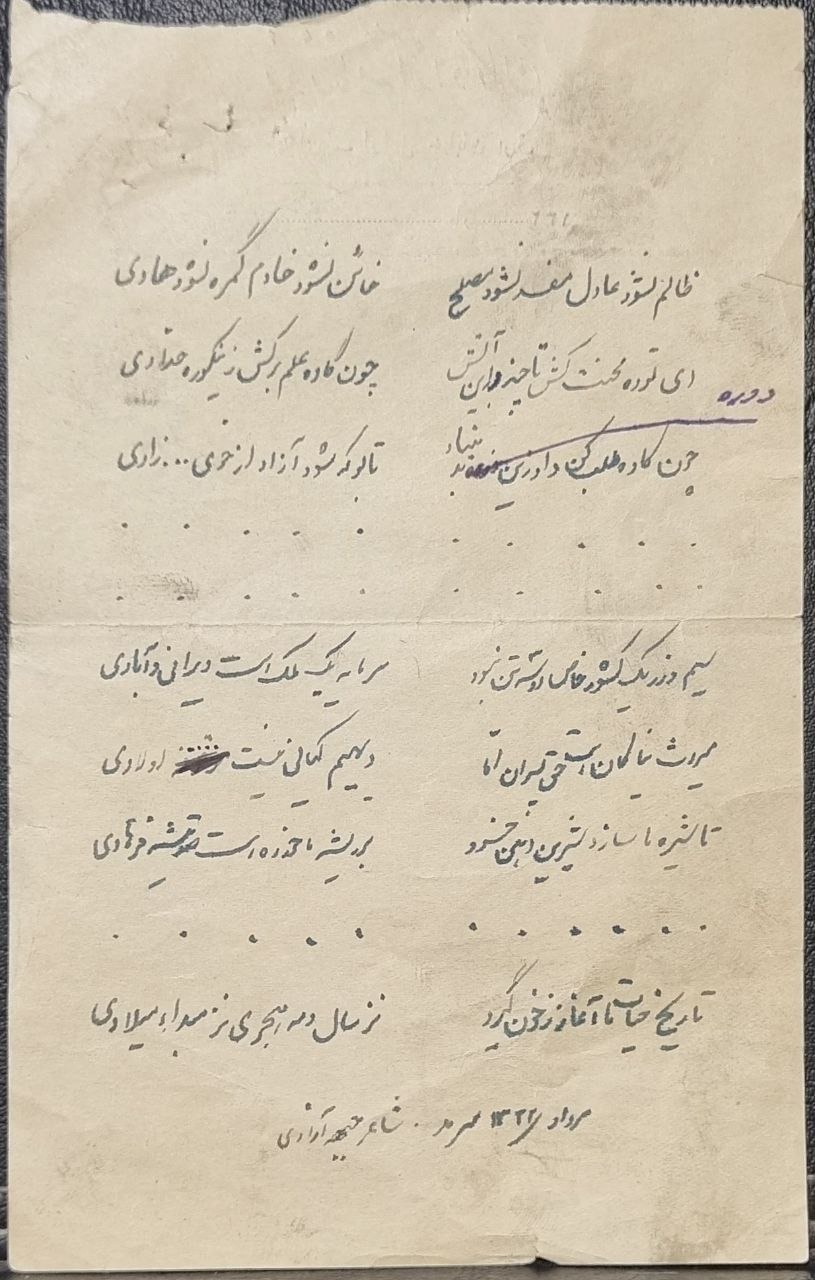 ظالم نشود عادل مفسد نشود مصلح خائن نشود خادم گمره نشود هادی
ای توده محنت کش تا خیزد ازین آتش چون کاوه علم برکش زینکوره حدادی
دوره
چون کاوه طلب کن داد زین بنیاد تا بو که شود آزاد از خوی ... زادی
. . . . . . . . . .
. . . . . . . . . .
سیم و زر یک کشور خاص دو سه تن نبود سرمایه یک ملک است ویرانی و آبادی
میراث نیاکان است حق پسران امّا دیهیم کیانی نیست اولادی
تا شیره ما سازد شیرین دهن خسرو بر ریشه ما خورده است تیشه فرهادی
. . . . . . . . . . .
تاریخ حیات ما آغاز ز خون گیرد نز سال و مه هجری نز مبداء میلادی
مرداد ۱۳۲۲ . شاعر جبهه آزادی